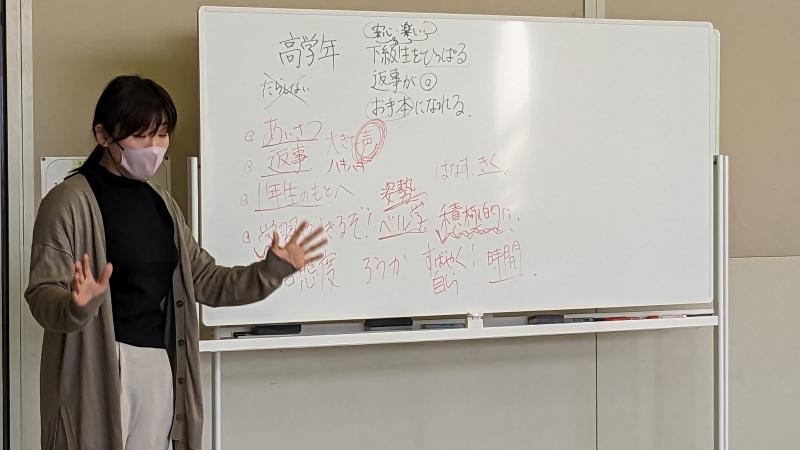 高学年
安心 楽しい
下級生をひっぱる
だらしない
返事が◎
お手本になれる。
① あいさつ 大きな声
② 返事 ハキハキ
③ 1年生のもとへ はなす、きく
姿勢
できるぞ! ベル学 積極的に、
態度 ろうか すばやく! 時間
自ら